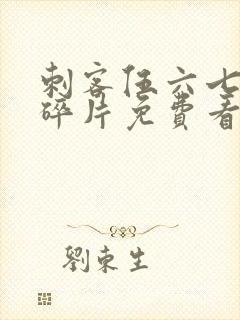 刺客伍六七
碎片免費看
劉東生